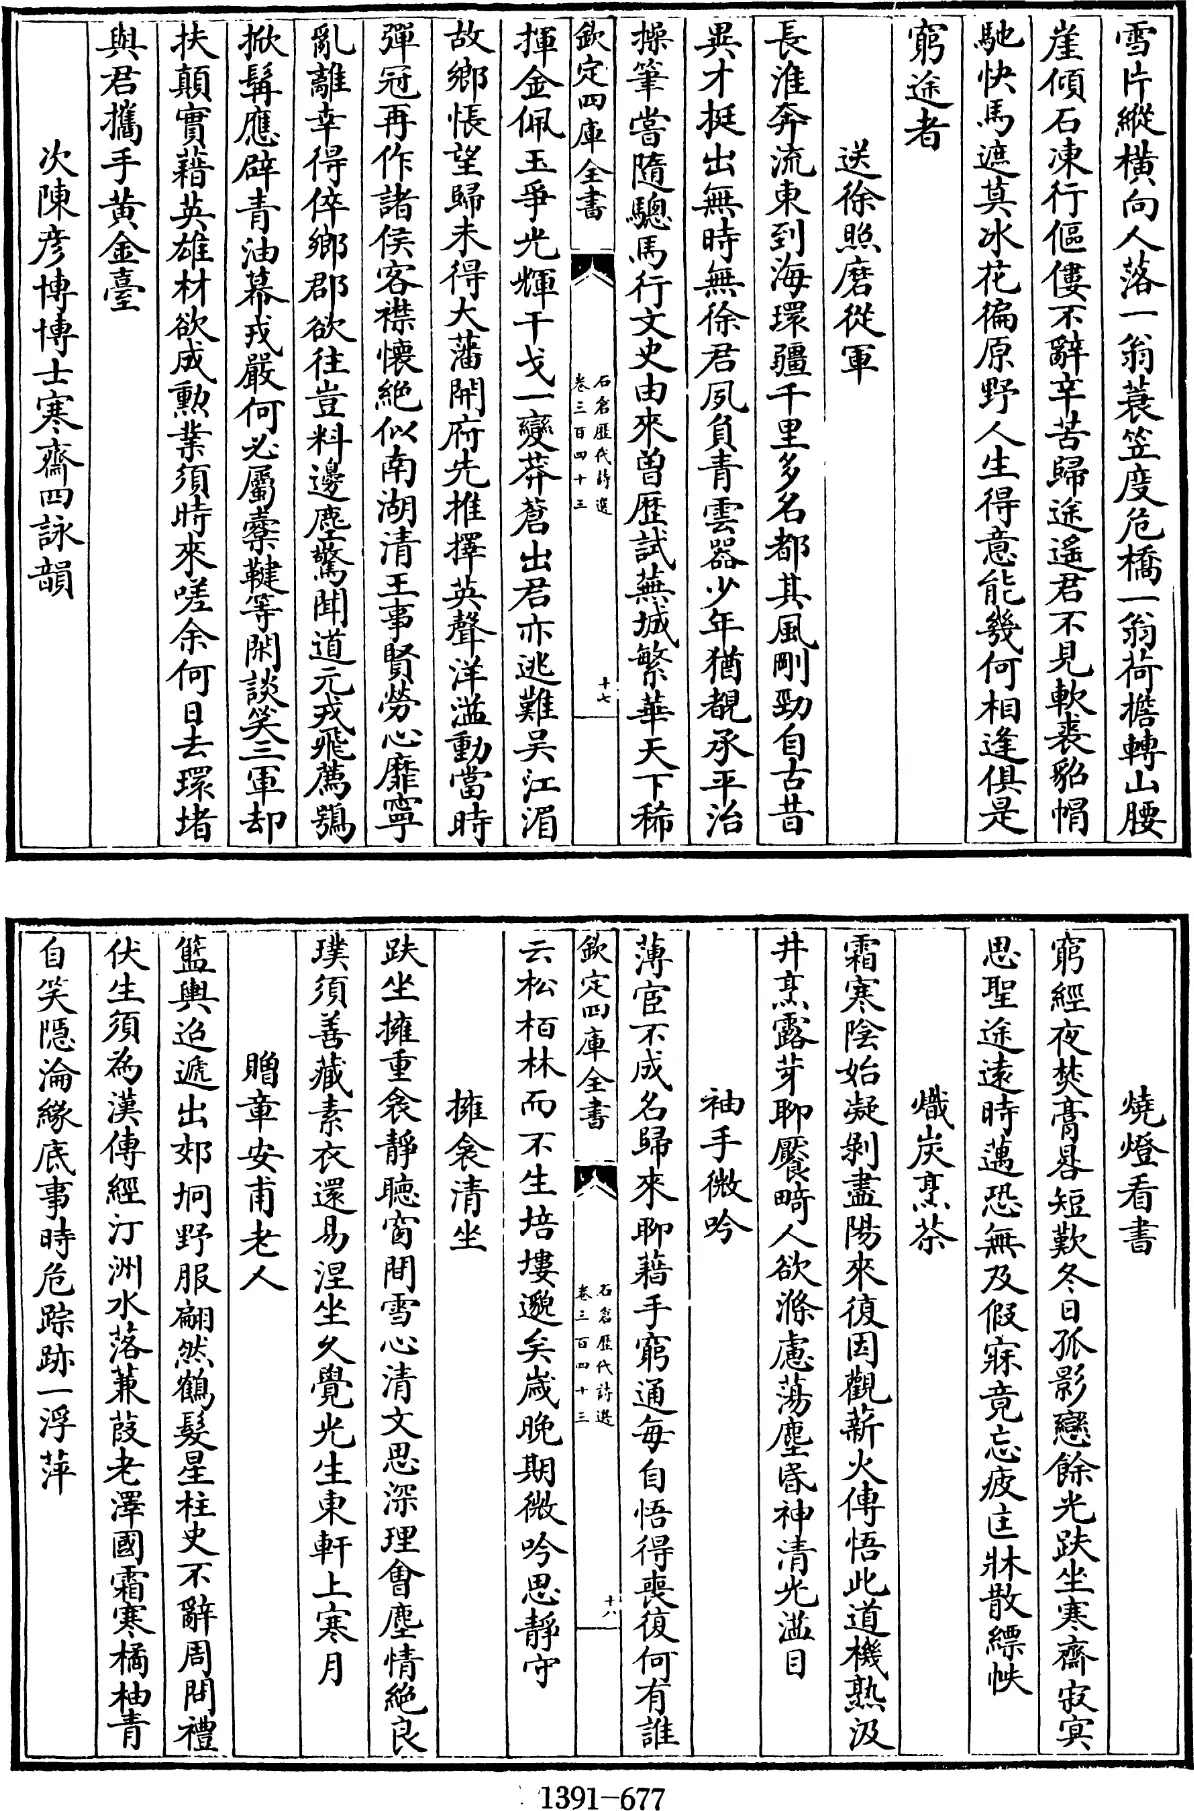 雪片縱橫向人落一翁蓑笠度危橋一翁荷擔轉山腰
崖傾石凍行傴僂不辭辛苦歸途遙君不見軟裘貂帽
馳快馬遮莫冰花徧原野人生得意能幾何相逢俱是
窮途者
送徐照磨從軍
長淮奔流東到海環疆千里多名都其風剛勁自古昔
異才挺出無時無徐君夙負青雲器少年猶覩承平治
操筆嘗隨驄馬行文史由來曽歴試蕪城繁華天下稀
欽定四庫全書
石倉歷代詩選
卷三百四十三
十七
揮金佩玉爭光輝干戈一變莽蒼出君亦逃難吳江湄
故鄉悵望歸未得大藩開府先推擇英聲洋溢動當時
彈冠再作諸侯客襟懷絶似南湖清王事賢勞心靡寧
亂離幸得倅鄉郡欲往豈料邊塵驚聞道元戎飛薦鶚
掀髯應辟青油幕戎嚴何必屬櫜鞬等閑談笑三軍却
扶顛實藉英雄材欲成勲業須時來嗟余何日去環堵
與君攜手黄金臺
次陳彦博博士寒齋四詠韻
燒燈看書
窮經夜焚膏晷短歎冬日孤影戀餘光趺坐寒齋寂寞
思聖途遠時邁恐無及假寐竟忘疲匡牀散縹帙
熾炭烹茶
霜寒陰始凝剝盡陽來復因觀薪火傳悟此道機熟汲
井烹露芽聊饜畸人欲滌慮蕩塵昏神清光溢目
袖手微吟
薄宦不成名歸來聊藉手窮通每自悟得喪復何有誰
欽定四庫全書
石倉歷代詩選
卷三百四十三
十八
云松栢林而不生培塿邈矣歲晚期微吟思靜守
擁衾清坐
趺坐擁重衾靜聽窗間雪心清文思深理會塵情絶良
璞須善藏素衣還易涅坐久覺光生東軒上寒月
贈章安甫老人
籃輿迢遞出郊坰野服翩然鶴髮星柱史不辭周問禮
伏生須為漢傳經汀洲水落蒹葭老澤國霜寒橘柚青
自笑隱淪緣底事時危踪跡一浮萍
1391-677